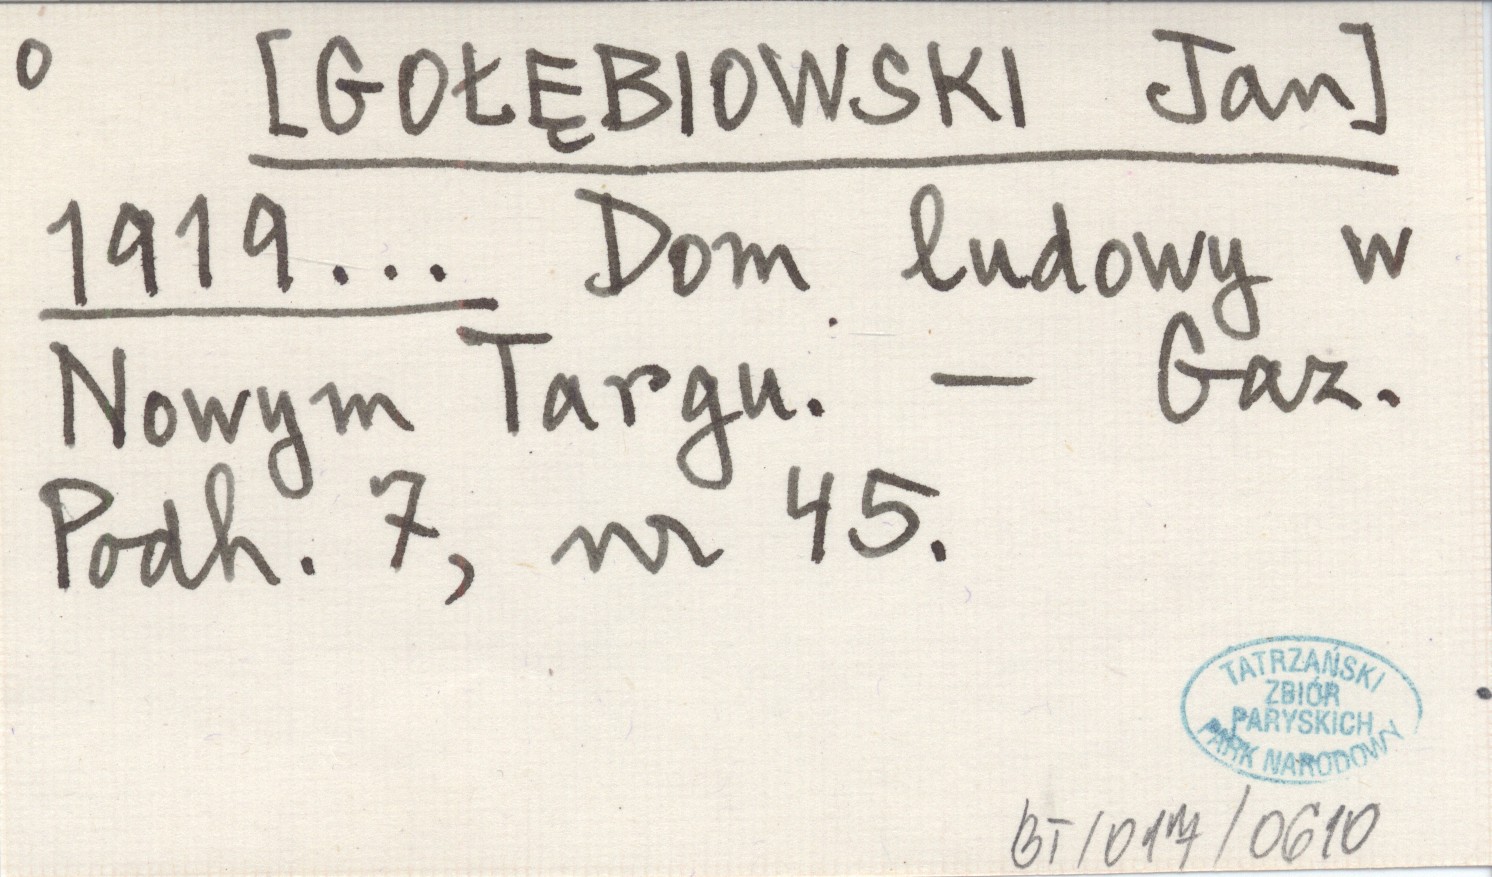 o [GOŁĘBIOWSKI Jan]
1919... Dom ludowy w
Nowym Targu. — Gaz.
Podh. 7, nr 45.
TATRZAŃSKI
ZBIÓR
PARYSKICH
PARK NARODOWY
BT/017/0610